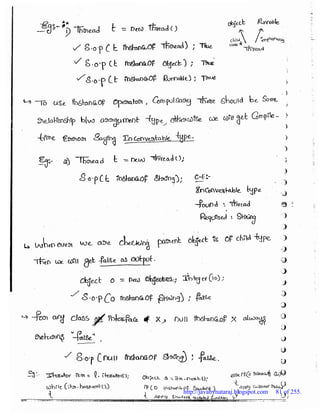 Eg:- 1) Thread t = new Thread()
object Runnable
child implements
Thread
✓ S.o.p(t instanceOf Thread); True
✓ S.o.p(t instanceOf Object); True
✓ S.o.p(t instanceOf Runnable); True
↳ → To use instanceOf operator, Compulsory there should be Some
relationship b/w argument type, otherwise we will get Compile-
time Error Saying Inconvertable type.
Eg:- a) Thread t = new Thread();
S.o.p(t instanceOf String); C.E:-
Inconvertable type
found : Thread
Required : String
↳ Whenever we are checking parent object is of child type
Then we will get false as output.
Object o = new Integer(10);
✓ S.o.p(o instanceOf String); false
↳ → For any class or interface X, null instanceOf X always
returns "false".
✓ S.o.p(null instanceOf String); false.
Eg: Iterator itr = l.iterator();
while(itr.hasNext())
{
Object o = itr.next();
if(o instanceOf Student)
{
apply Student related function
}
else if(o instanceOf Customer)
{
apply Customer
http://javabynataraj.blogspot.com 81 of 255.